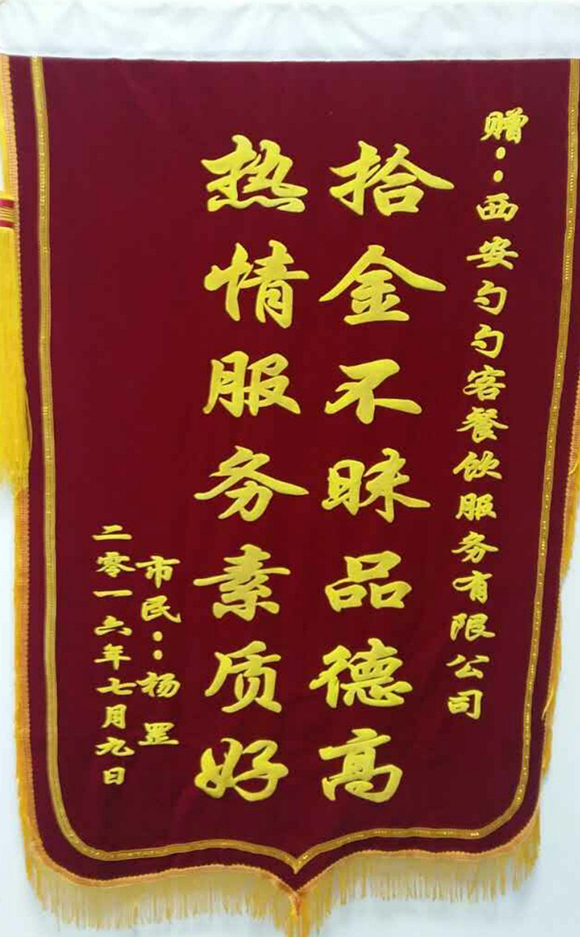 赠：西安勺勺客餐饮服务有限公司
拾金不昧品德高
热情服务素质好
市民：杨罡
二零一六年七月九日